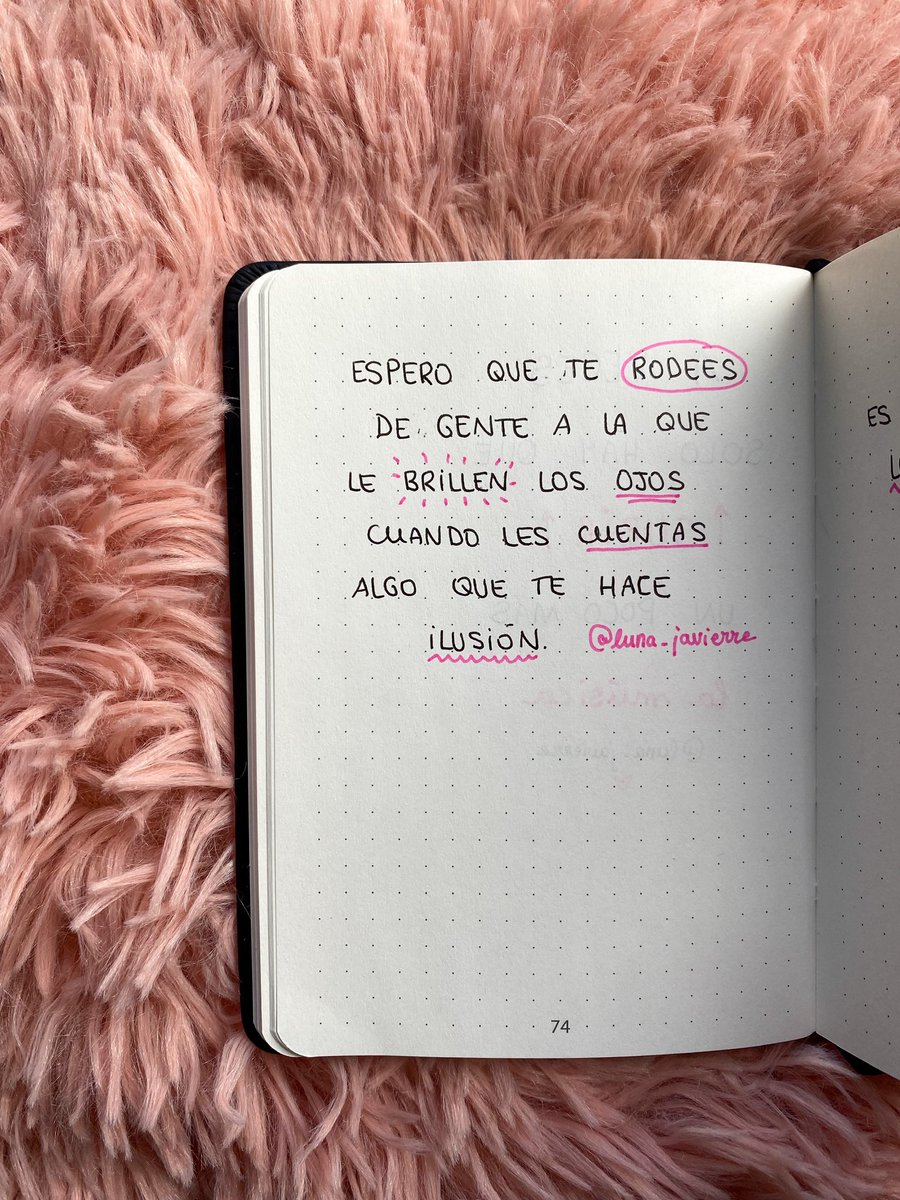 ESPERO QUE TE RODEES
DE GENTE A LA QUE
LE BRILLEN LOS OJOS
CUANDO LES CUENTAS
ALGO QUE TE HACE
ILUSIÓN. @luna_javierre
74
ES